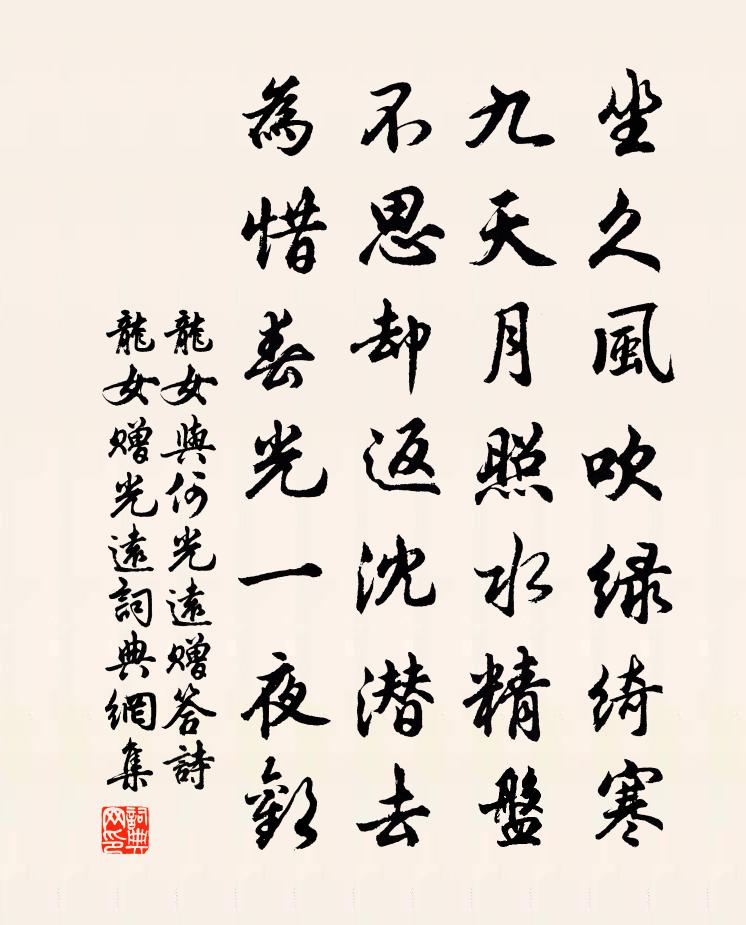 坐久風吹綠綺寒
九天月照水精盤
不思却返沈潛去
為惜春光一夜歡
龍女與何光遠贈答詩
龍女贈光遠詞典網集
詞典網印